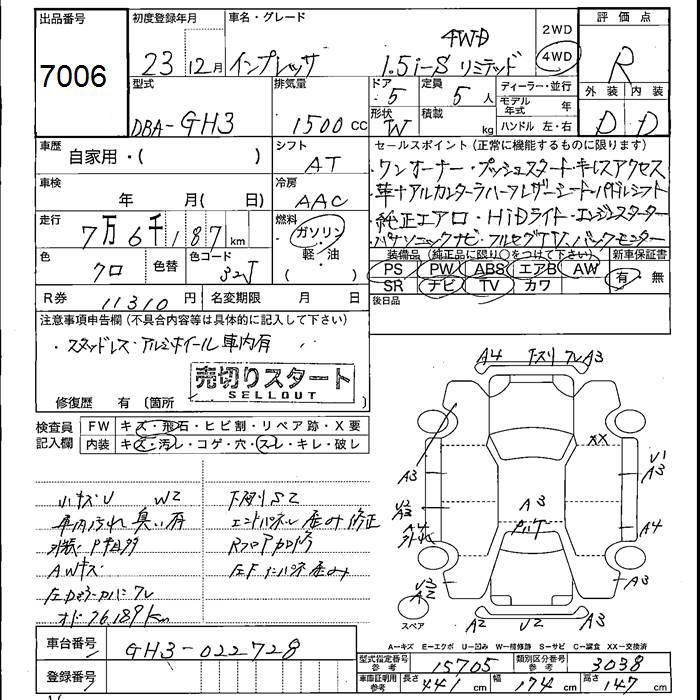 出品番号
7006
初度登録年月
23 12月
車名・グレード
インプレッサ
4WD
1.5i-S リミテッド
2WD
4WD
評価点
R
外装 内装
D D
型式
DBA-GH3
排気量
1500 cc
ドア
5
形状
W
定員
5 人
積載
kg
ディーラー・並行
モデル年式 年
ハンドル 左・右
車歴
自家用・( )
シフト
AT
セールスポイント(正常に機能するものに限ります)
・ワンオーナー・プッシュスタート・キーレスアクセス
・革+アルカンターラハーフレザーシート・パドルシフト
・純正エアロ・HiDライト・エンジンスターター
・パナソニックナビ・フルセグTV、バックモニター
車検
年 月( 日)
冷房
AAC
走行
7万6千187km
燃料
ガソリン
軽・油
( )
色
クロ
色替
色コード
32J
装備品(純正品に限り○をつけて下さい)
PS PW ABS エアB AW
SR ナビ TV カワ
新車保証書
有・無
後日品
R券 11310 円
名変期限 月 日
注意事項申告欄(不具合内容等は具体的に記入して下さい)
・スタッドレス・アルミホイール車内有
売切りスタート
SELLOUT
修復歴 有(箇所 )
検査員記入欄
FW キズ・飛石・ヒビ割・リペア跡・X要
内装 キズ・汚レ・コゲ・穴・スレ・キレ・破レ
小キズU W2
車内汚れ 臭い有
外装 P 多
AWキズ
左ドアミラーカバーズレ
オド76.189km
下廻りS2
エンドパネル歪み修正
Rフロア
左F インパネ歪み
A4 下スリ ズレ A3
XX
A3
U A3
A3
U2 A3
A4
A3
A4
A3
U3 A2
A3
スペア
A2 U2 A3
A-キズ E-エクボ U-凹み W-補修跡 S-サビ C-腐食 XX-交換済
車台番号
GH3-022728
登録番号
型式指定番号参考 15705
類別区分番号参考 3038
車庫証明用参考 長さ 441 cm 幅 174 cm 高さ 147 cm